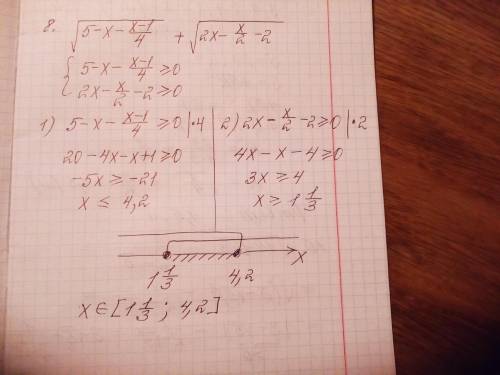 8. √(5-x-(x-1)/4) + √(2x-x/2-2)
{ 5-x-(x-1)/4 ≥0
2x-x/2-2≥0
1) 5-x-(x-1)/4 ≥0 |·4
20-4x-x+1≥0
-5x ≥ -21
x ≤ 4,2
2) 2x-x/2-2≥0 |·2
4x-x-4≥0
3x ≥4
x ≥ 1 1/3
1 1/3 4,2 x
x∈[1 1/3 ; 4,2]